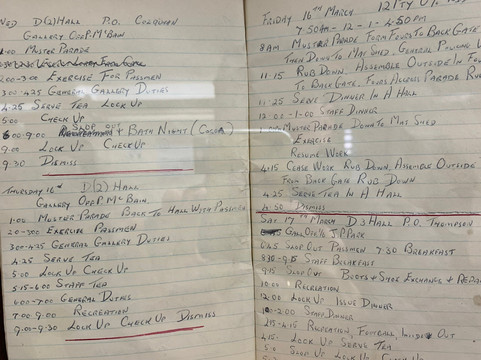 WED D(2) HALL P.O. COLQUHOUN
GALLERY OFF P. McBAIN
1:00 MUSTER PARADE
2:00-3:00 EXERCISE FOR PASSMEN
3:00-4:25 GENERAL GALLERY DUTIES
4:25 SERVE TEA LOCK UP
5:00 CHECK UP
6:00-9:00 SLOP OUT + BATH NIGHT (COCOA)
9:00 LOCK UP CHECK UP
9:30 DISMISS
THURSDAY D(2) HALL
GALLERY OFF P. McBAIN
1:00 MUSTER PARADE BACK TO HALL WITH PASSMEN
2:00-3:00 EXERCISE PASSMEN
3:00-4:25 GENERAL GALLERY DUTIES
4:25 SERVE TEA
5:00 LOCK UP CHECK UP
5:15-6:00 STAFF TEA
6:00-7:00 GENERAL DUTIES
7:00-9:00 RECREATION
9:00-9:30 LOCK UP CHECK UP DISMISS
FRIDAY 16TH MARCH 12 PTY
7:50AM-12-1-4:50PM
8AM MUSTER PARADE FORM FOURS TO BACK GATE
THEN DOWN TO MAT SHED. GENERAL
11:15 RUB DOWN. ASSEMBLE OUTSIDE IN
TO BACK GATE, FOURS ACROSS PARADE
11:25 SERVE DINNER IN A HALL
12:00-1:00 STAFF DINNER
MUSTER PARADE DOWN TO MAT SHED
EXERCISE
RESUME WORK
4:15 CEASE WORK RUB DOWN, ASSEMBLE OUTSIDE
FROM BACK GATE RUB DOWN
4:25 SERVE TEA IN A HALL
4:50 DISMISS
SAT 17TH MARCH D3 HALL P.O. THOMPSON
GALL OFF J. PACK
6:45 SLOP OUT PASSMEN 7:30 BREAKFAST
8:30-9:15 STAFF BREAKFAST
9:15 SLOP OUT BOOTS & SHOE EXCHANGE &
10:00 RECREATION
12:00 LOCK UP ISSUE DINNER
STAFF DINNER
2:15-4:15 RECREATION, FOOTBALL, OUT
4:15- LOCK UP SERVE TEA
SLOP UP LOCK UP